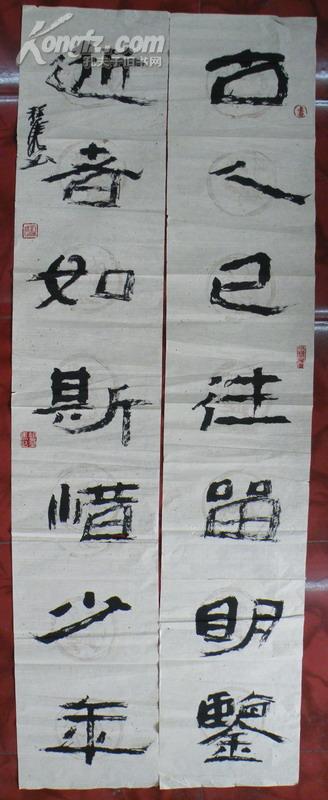 古人已往留明鑒
逝者如斯惜少年
Kongfz.com
孔夫子旧书网